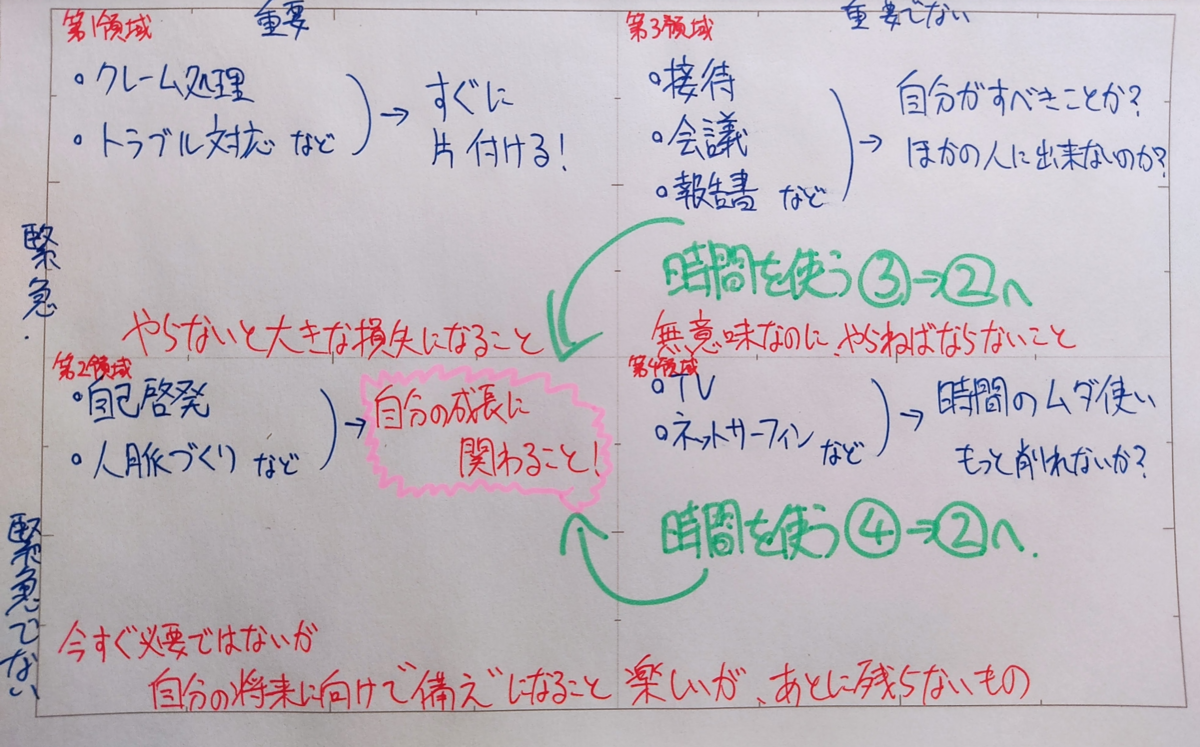 重要
重要でない
緊急
緊急でない
第1領域
クレーム処理
トラブル対応 など
→ すぐに
片付ける!
やらないと大きな損失になること
第3領域
接待
会議
報告書 など
→ 自分がすべきことか?
ほかの人に出来ないのか?
時間を使う③→②へ
無意味なのに、やらねばならないこと
第2領域
自己啓発
人脈づくり など
→ 自分の成長に
関わること!
今すぐ必要ではないが
自分の将来に向けて"備え"になること
第4領域
TV
ネットサーフィン など
→ 時間のムダ使い
もっと削れないか?
時間を使う④→②へ.
楽しいが、あとに残らないもの